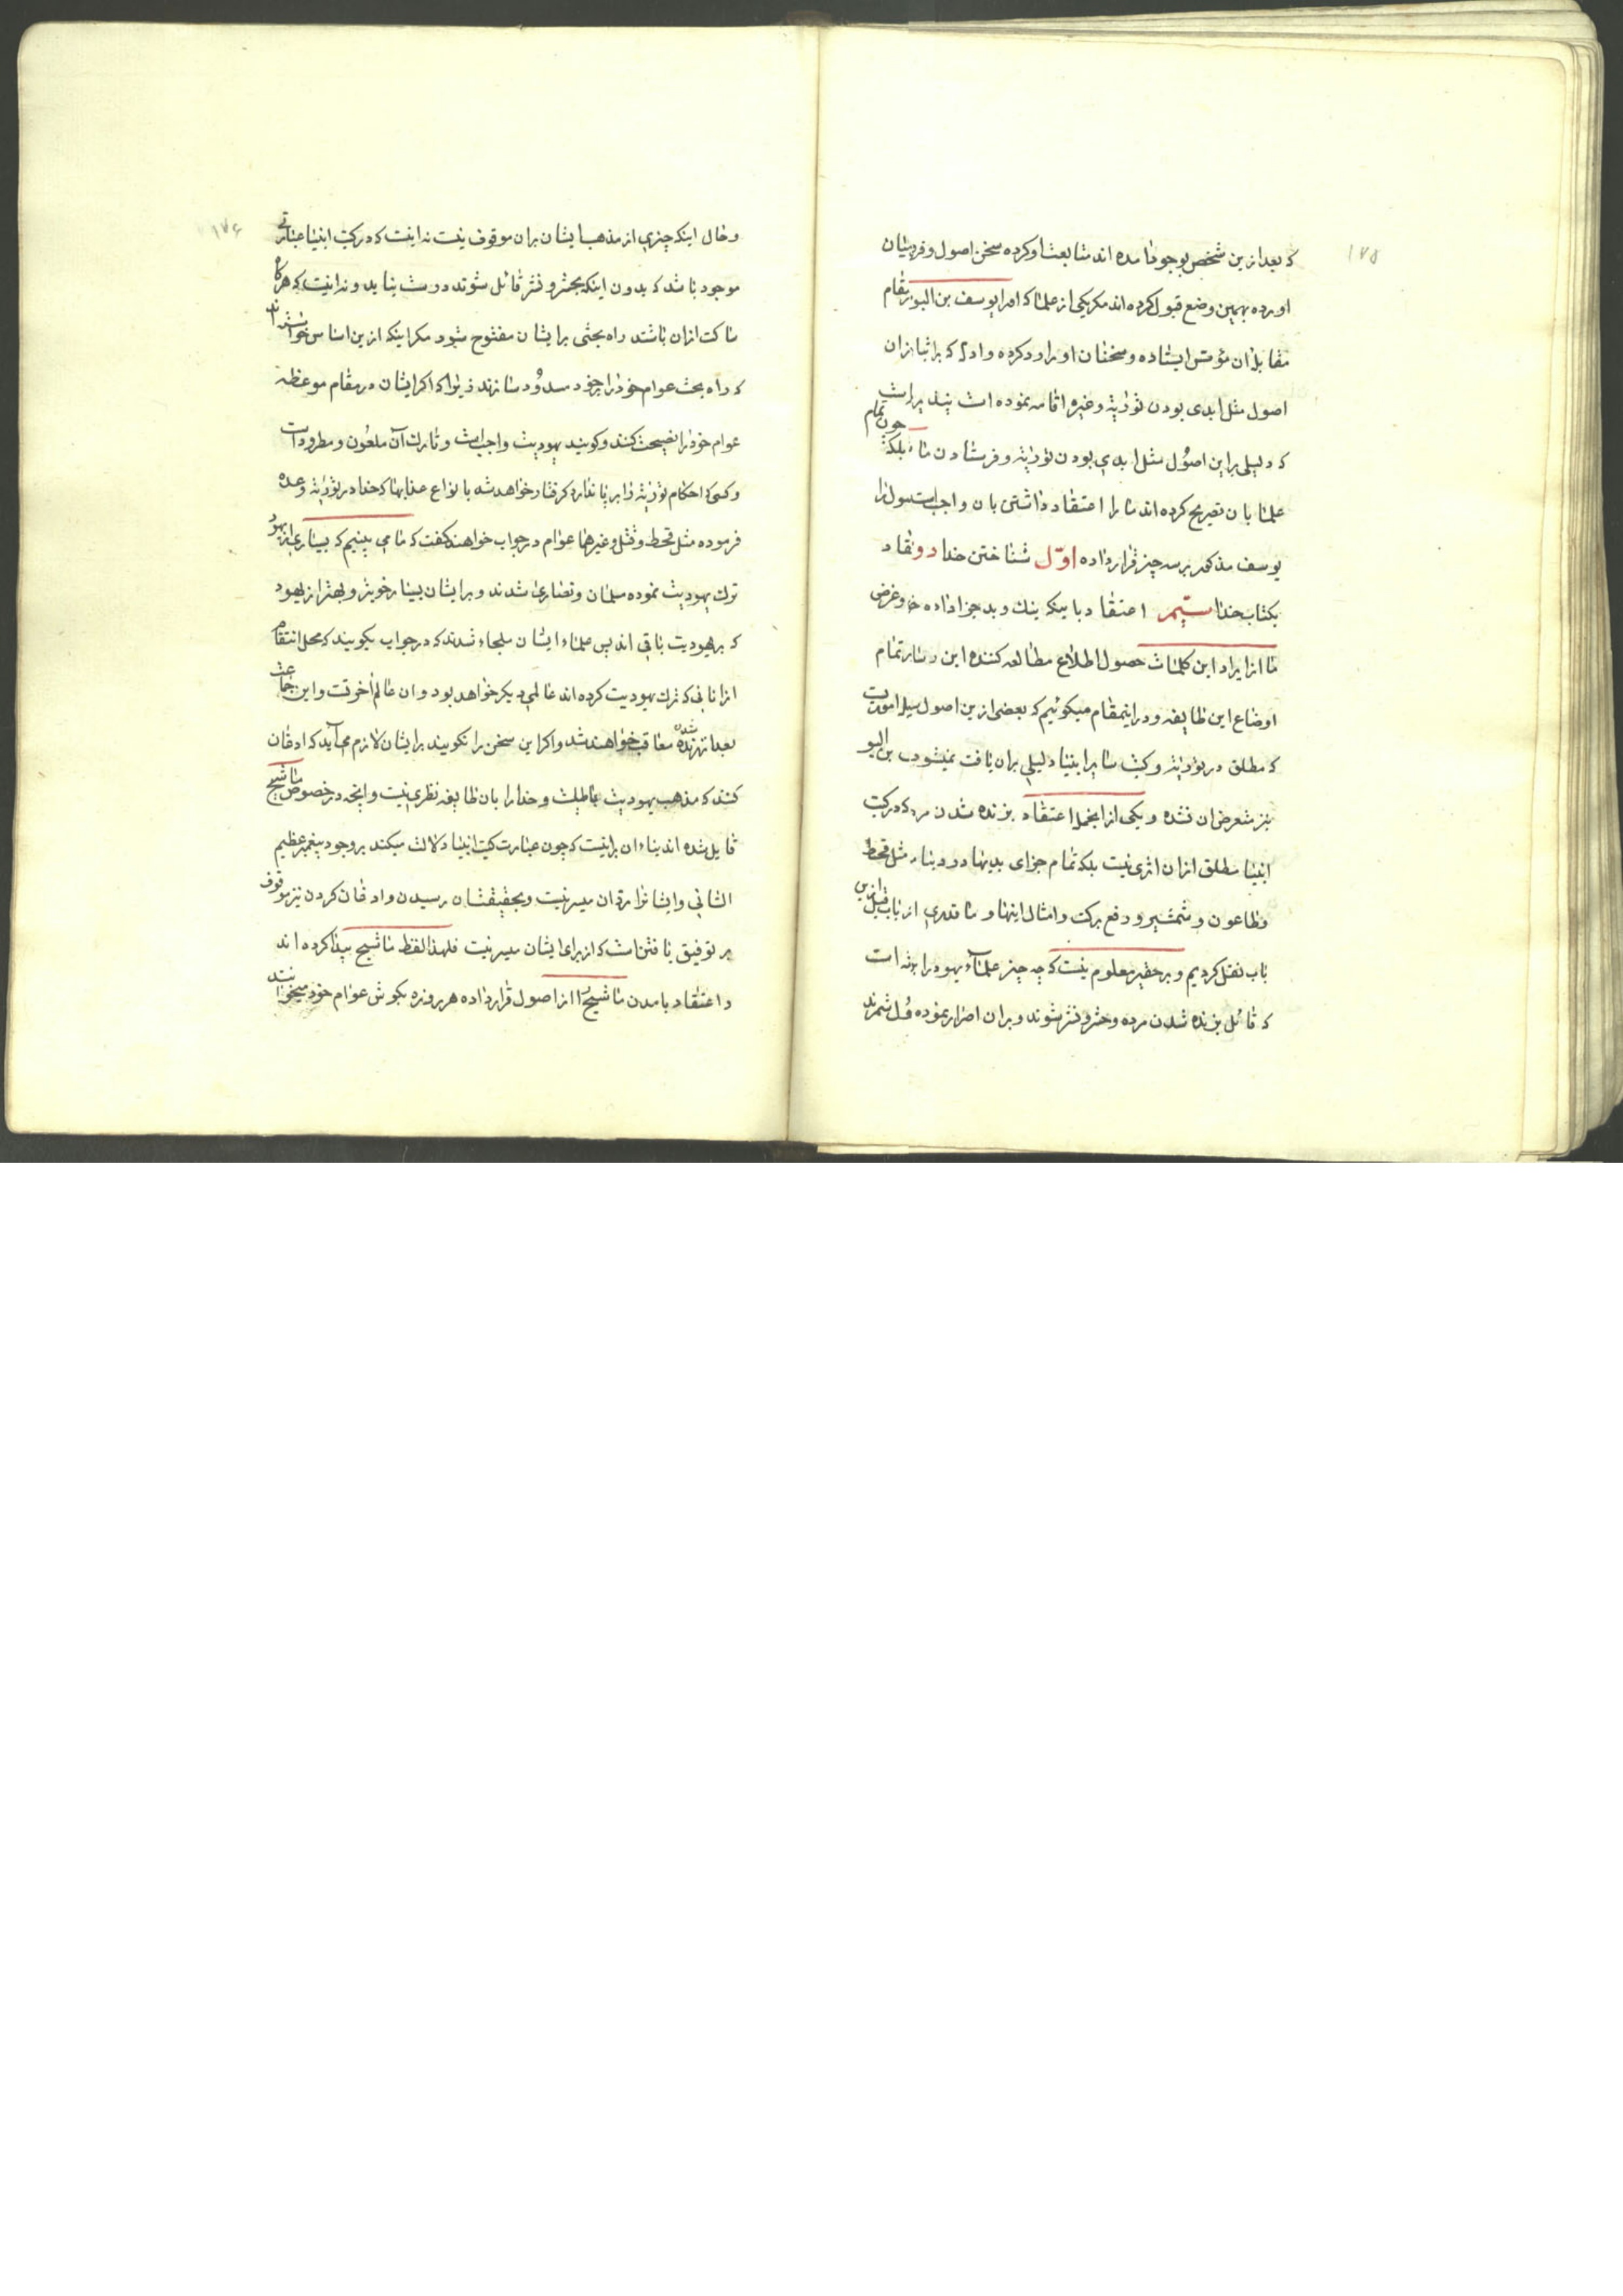 ۱۷۵
که بعد ازین شخص بوجود آمده اند متابعت او کرده سخن اصول و فرستان
اورده بهمین وضع قبول کرده اند مکر یکی از علما که امرا یوسف بن البو بمقام
مقابل آن مؤسس ایستاده و سخنان او را رد کرده و ادله که بر اثبات آن
اصول مثل ابدی بودن توریة و غیره اقامه نموده است
که دلیلی بر این اصول مثل ابدی بودن توریة و فرستادن بلکه چون تمام
علما بان تصریح کرده اند ما را اعتقاد داشتن بان واجبست اصول را
یوسف مذکور بر سه چیز قرار داده اوّل شناختن خدا دو اعتقاد
بکتاب خدا سیّم اعتقاد باینکه نیک و بد جزا داده و غرض
ما از ایراد این کلمات حصول اطلاع مطالعه کننده این رساله بر تمام
اوضاع این طایفه و در اینمقام میکوئیم که بعضی ازین اصول امور یست
که مطلق در توریة و کتب سایر انبیا دلیلی بران یافت نمیشود بن البو
نیز متعرض ان نشده و یکی از انجمله اعتقاد بزنده شدن مرده که در کتب
انبیا مطلق ازان اثری نیست بلکه تمام جزای بدیها در دنیا مثل قحط
و طاعون و شمشیر و دفع برکت و امثال اینها و ما قدری از باب قبل ازین
باب نقل کردیم و بر حقیر معلوم نیست که چه چیز علماء یهود را برنه است
که قائل بزنده شدن مرده و حشر و نشر شوند و بران اصرار نموده اصل شمرند
۱۷۶
و حال اینکه چیزی از مذهب ایشان بران موقوف نیست نه اینست که در کتب انبیا عبارتی
موجود باشد که بدون اینکه بحشر و نشر قائل شوند درست نیاید و نه اینست که هرکاه
ساکت ازان باشند راه بحثی بر ایشان مفتوح شود مکر اینکه ازین اساس خواسته اند
که راه بحث عوام خود را بر خود مسدود سازند زیرا که اکر ایشان در مقام موعظه
عوام خود را نصیحت کنند و کویند یهودیت واجب است و تارک آن ملعون و مطرود است
و کسی که احکام توریة را بر پا ندارد کرفتار خواهد شد بانواع عذابها که خدا در توریة وعده
فرموده مثل قحط و قتل و غیرهما عوام در جواب خواهند کفت که ما می بینیم که بسیاری از یهود
ترک یهودیت نموده مسلمان و نصاری شدند و بر ایشان بسیار خوبتر و بهتر از یهود
که بر یهودیت باقی اند پس علماء ایشان ملجاء شدند که در جواب بکویند که محل انتقام
از انانی که ترک یهودیت کرده اند عالمی دیکر خواهد بود و ان عالم آخرتست و این جماعت
بعد از زنده شدن معاقب خواهند شد و اکر این سخن را نکویند بر ایشان لازم می آید که اذعان
کنند که مذهب یهودیت باطلست و خدا را بان طایفه نظری نیست و آنچه در خصوص ماشیح
قایل شده اند بناء ان بر اینست که چون عبارت کتب انبیاء دلالت میکند بر وجود پیغمبر عظیم
الشانی و ایشانرا رد ان میسر نیست و بحقیقتشان رسیدن و اذعان کردن نیز موقوف
بر توفیق یافتن است که از برای ایشان میسر نیست فلهذا لفظ ماشیح پیدا کرده اند
و اعتقاد بامدن ماشیح را از اصول قرار داده هر روزه بکوش عوام خود میخوانند